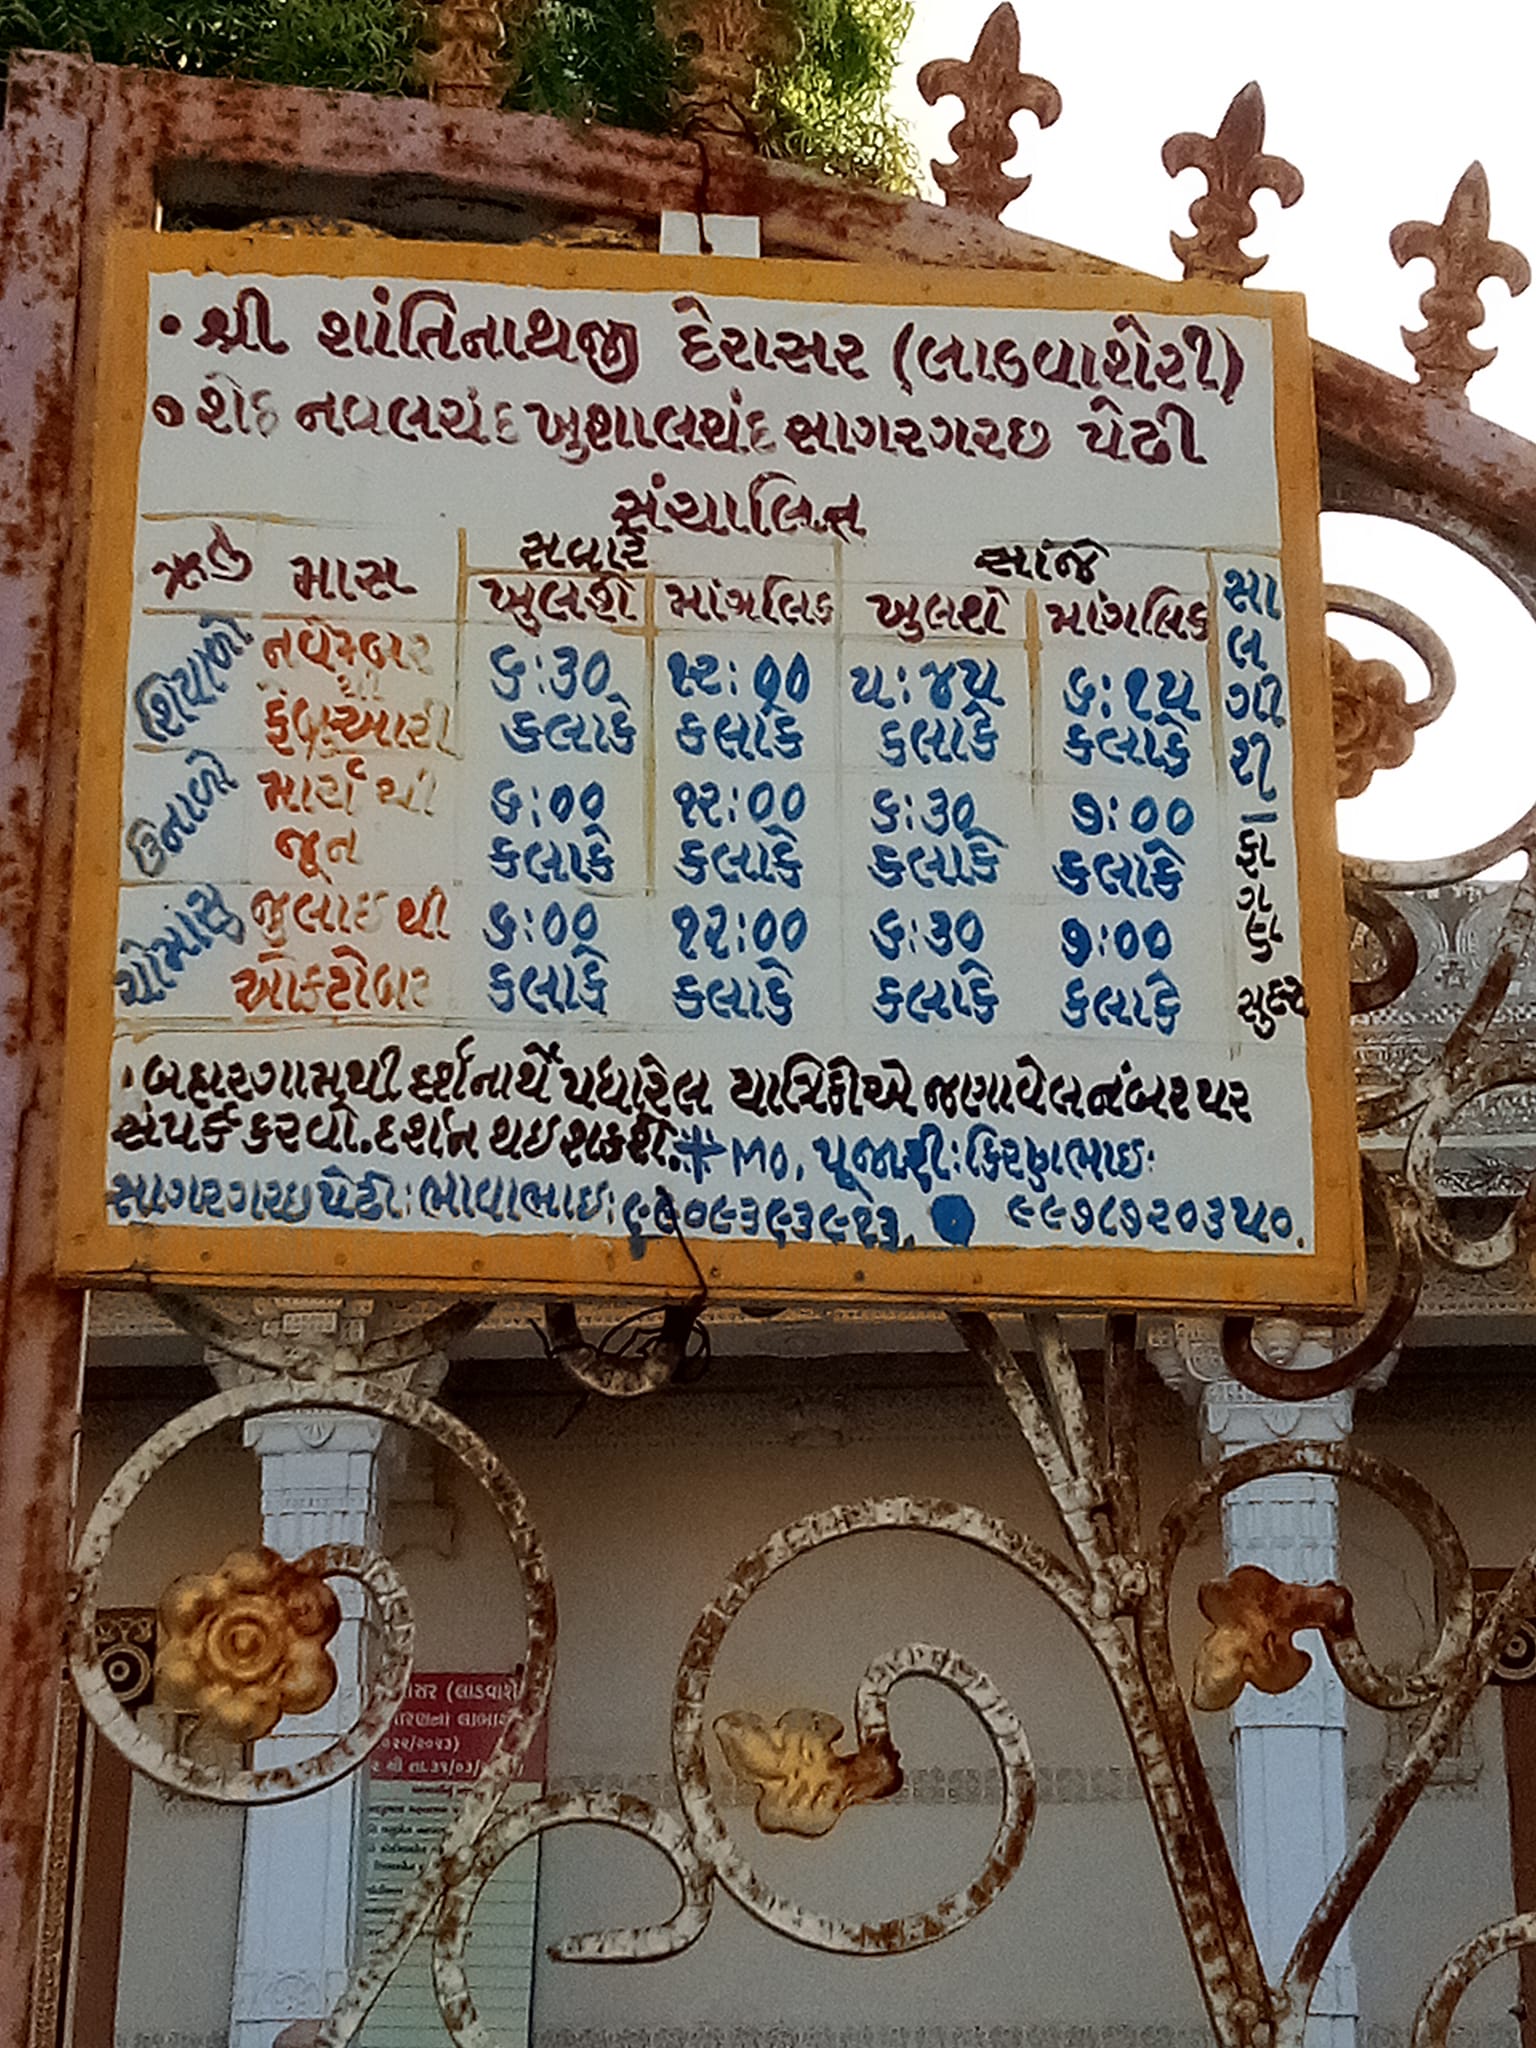 • શ્રી શાંતિનાથજી દેરાસર (લાડવાશેરી)
• શેઠ નવલચંદ ખુશાલચંદ સાગરગચ્છ પેઢી
સંચાલિત
ઋતુ માસ સવારે સાંજે
ખુલશે માંગલિક ખુલશે માંગલિક
શિયાળો નવેમ્બર થી ફેબ્રુઆરી ૬:૩૦ કલાકે ૧૨:૦૦ કલાકે ૫:૪૫ કલાકે ૬:૧૫ કલાકે
ઉનાળો માર્ચ થી જૂન ૬:૦૦ કલાકે ૧૨:૦૦ કલાકે ૬:૩૦ કલાકે ૭:૦૦ કલાકે
ચોમાસુ જુલાઇ થી ઓક્ટોબર ૬:૦૦ કલાકે ૧૨:૦૦ કલાકે ૬:૩૦ કલાકે ૭:૦૦ કલાકે
સાલગીરી - ફાગણ
• બહારગામથી દર્શનાર્થે પધારેલ યાત્રિકોએ જણાવેલ નંબર પર
સંપર્ક કરવો. દર્શન થઇ શકશે. * MO. પૂજારી: કિરણભાઇ:
સાગરગચ્છ પેઢી: ભાવાભાઇ: ૯૯૭૮૭૨૦૩૫૦.